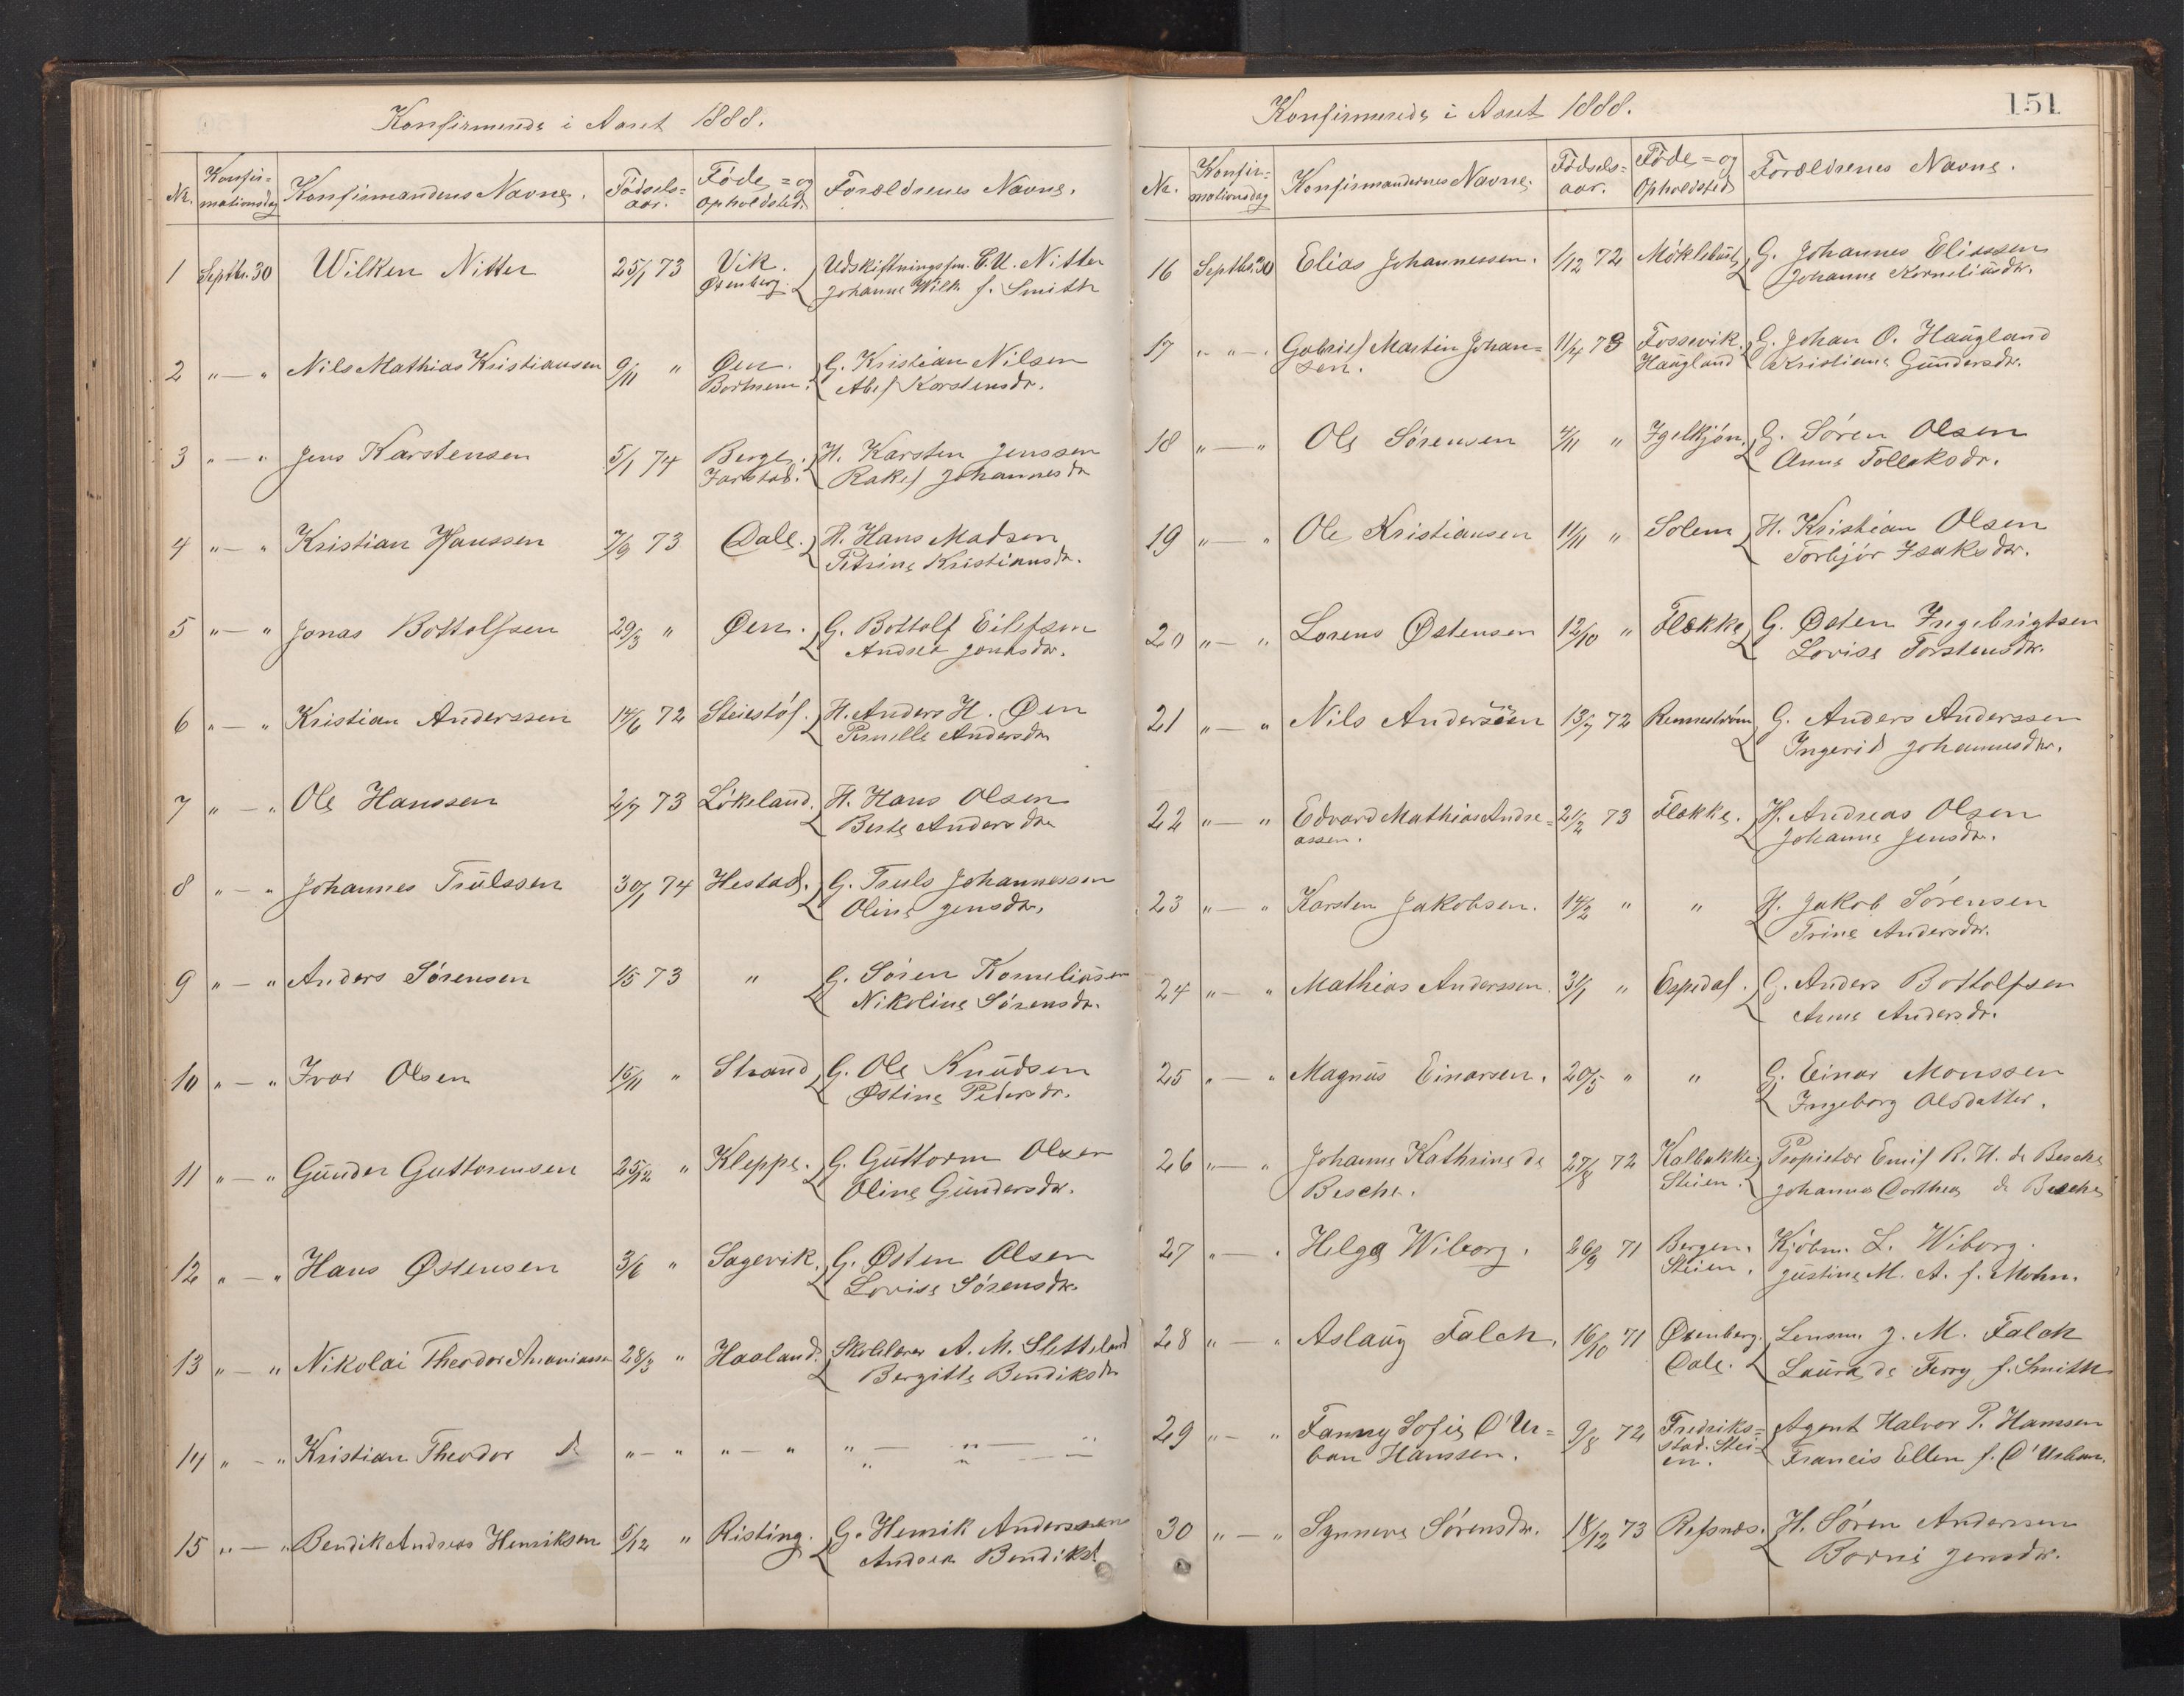 Konfirmerede i Aaret 1888.
Nr. Konfir-mationsdag Konfirmandens Navne. Fødsels-aar. Føde- og Opholdsted. Forældrenes Navne.
1 Septbr. 30 Wilken Nitter 25/1 73 Vik. Øxenberg. Udskiftningsfm. C. U. Nitter
Johanne Wilh f. Smith
2 " — " Nils Mathias Kristiansen 9/11 " Øen. Bortnem. G. Kristian Nilsen
Abel Karstensdr.
3 " — " Jens Karstensen 5/1 74 Berge. Jarstad. H. Karsten Jenssen
Rakel Johannesdr
4 " — " Kristian Hanssen 7/9 73 Dale. H. Hans Madsen
Petrine Kristiansdr.
5 " — " Jonas Bottolfsen 29/3 " Øen. G. Bottolf Eilefsen
Andrea Jonasdr.
6 " — " Kristian Anderssen 14/6 72 Steiestøl. H. Anders H. Øen
Pernille Andersdr
7 " — " Ole Hanssen 2/7 73 Løkeland. H. Hans Olsen
Berte Andersdr
8 " — " Johannes Trulssen 30/1 74 Hestad. G. Truls Johannessen
Oline Jensdr.
9 " — " Anders Sørensen 1/5 73 " G. Søren Korneliussen
Nikoline Sørensdr.
10 " — " Ivar Olsen 15/11 " Strand G. Ole Knudsen
Østine Pedersdr.
11 " — " Gunder Guttormsen 25/12 " Kleppe. G. Guttorm Olsen
Oline Gundersdr.
12 " — " Hans Østensen 3/6 " Sagevik. G. Østen Olsen
Lovise Sørensdr.
13 " — " Nikolai Theodor Ananiassen 28/3 " Haaland. Skolelærer A. M. Sletteland
Bergitte Bendiksdr
14 " — " Kristian Theodor do " — " " — " " — " — "
15 " — " Bendik Andreas Henriksen 5/12 " Risting. G. Henrik Anderssen
Andrea Bendiksd
151
Konfirmerede i Aaret 1888.
Nr. Konfir-mationsdag Konfirmandernes Navne. Fødsels-aar. Føde- og Opholdsted Forældrenes Navne.
16 Septbr. 30 Elias Johannessen. 1/12 72 Møklebust G. Johannes Eliassen
Johanne Korneliusdr.
17 " — " Gabriel Martin Johan- 11/4 73 Fossevik. G. Johan O. Haugland
sen. Haugland Kristiane Gundersdr.
18 " — " Ole Sørensen 4/11 " Igelkjøn. G. Søren Olsen
Anne Tollaksdr.
19 " — " Ole Kristiansen 11/11 " Solem H. Kristian Olsen
Torbjør Isaksdr.
20 " — " Lorens Østensen 12/10 " Flekke G. Østen Ingebrigtsen
Lovise Torstensdr.
21 " — " Nils Anderssen 13/7 72 Rennestrøm G. Anders Anderssen
Ingerid Johannesdr.
22 " — " Edvard Mathias Andre- 21/2 73 Flekke. H. Andreas Olsen
assen. Johanne Jensdr.
23 " — " Karsten Jakobsen. 14/2 " " H. Jakob Sørensen
Trine Andersdr.
24 " — " Mathias Anderssen. 31/1 " Espedal. G. Anders Bottolfsen
Anne Andersdr.
25 " — " Magnus Einarsen. 20/5 " " G. Einar Monssen
Ingeborg Olsdatter.
26 " — " Johanne Kathrine de 27/8 72 Kalbakke. Propietær Emil R. H. de Besche
Besche. Steien. Johanna Dorthea de Besche
27 " — " Helga Wiborg. 26/9 71 Bergen. Kjøbm. L. Wiborg.
Steien. Justine M. A. f. Mohn.
28 " — " Aslaug Falch. 16/10 71 Øxenberg. Lensm. J. M. Falch
Dale. Laura de Ferry f. Smith
29 " — " Fanny Sofie D'Ur- 9/8 72 Fredriks- Agent Halvor P. Hanssen
ban Hanssen. stad. Stei-en. Francis Ellen f. D'Urban.
30 " — " Synneve Sørensdr. 18/12 73 Refsnæs. H. Søren Anderssen
Børni Jensdr.